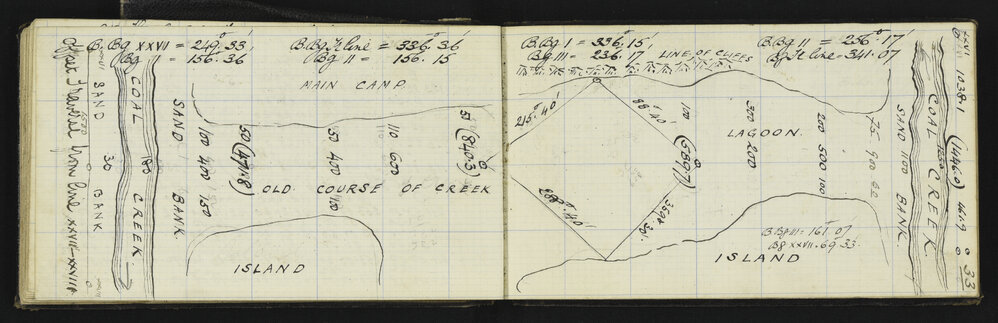 B. Bg XXVII = 249°. 33'
Bg 1 = 156. 36
B. Bg Tr line = 336°. 36'
Bg 11 = 156. 15
MAIN CAMP
SAND BANK
30
COAL CREEK
180
SAND BANK
100 400 150
50 (474.8)
50 400 100
110 600
51 (840.3) 0
OLD COURSE OF CREEK
ISLAND
Traverse from line XXVII-XXVIII
B. Bg I = 336°. 15'
Bg III = 236. 17
LINE OF CLIFFS
B. Bg 11 = 256°. 17'
Bg Tr line = 341. 07
215°. 40'
88°. 40'
100 (589.7) 0
300 200
LAGOON
200 500 100
75 900
SAND 1100 BANK
COAL CREEK
XXVII
1038.1 (1446.0) 0
0 33
288°. 40'
B. Bg VII = 161°. 07'
Bg XXVII. 69. 33'
ISLAND